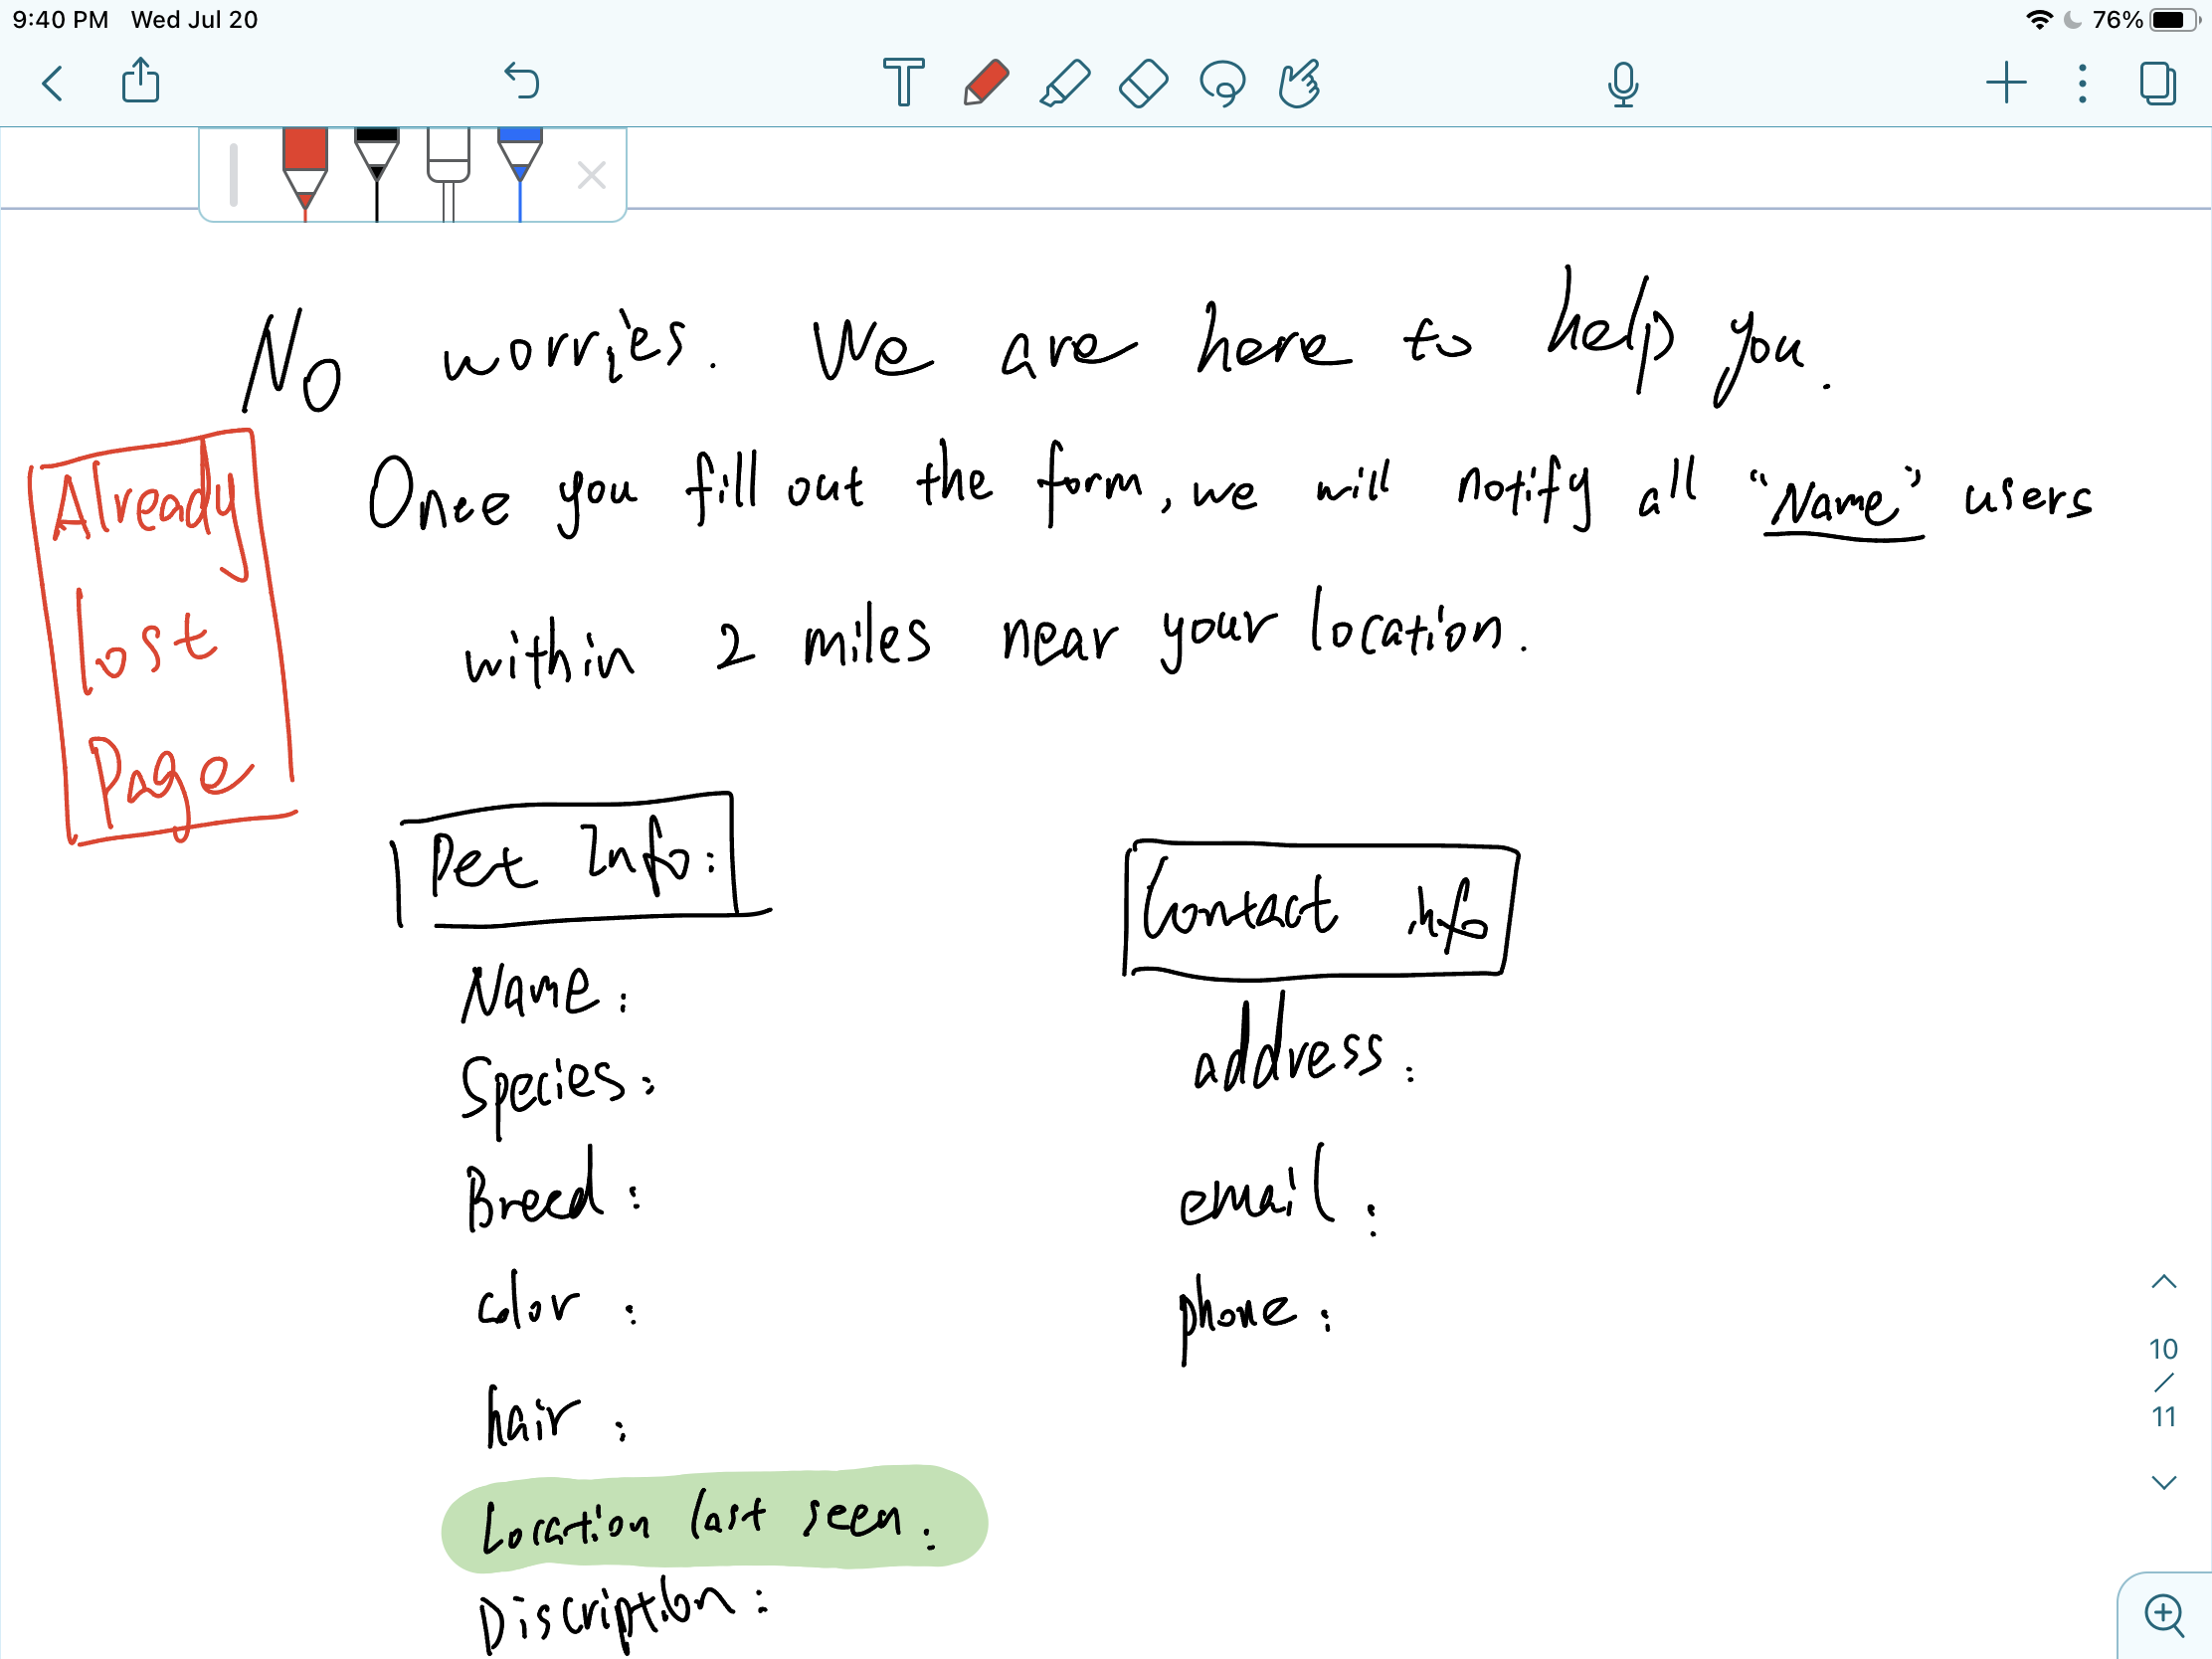 9:40 PM Wed Jul 20
76%
No worries. We are here to help you.
Already
lost
Page
Once you fill out the form, we will notify all "Name" users
within 2 miles near your location.
Pet Info:
Name:
Species:
Breed:
color:
hair:
Location last seen:
Discription:
Contact info
address:
email:
phone:
10
/
11